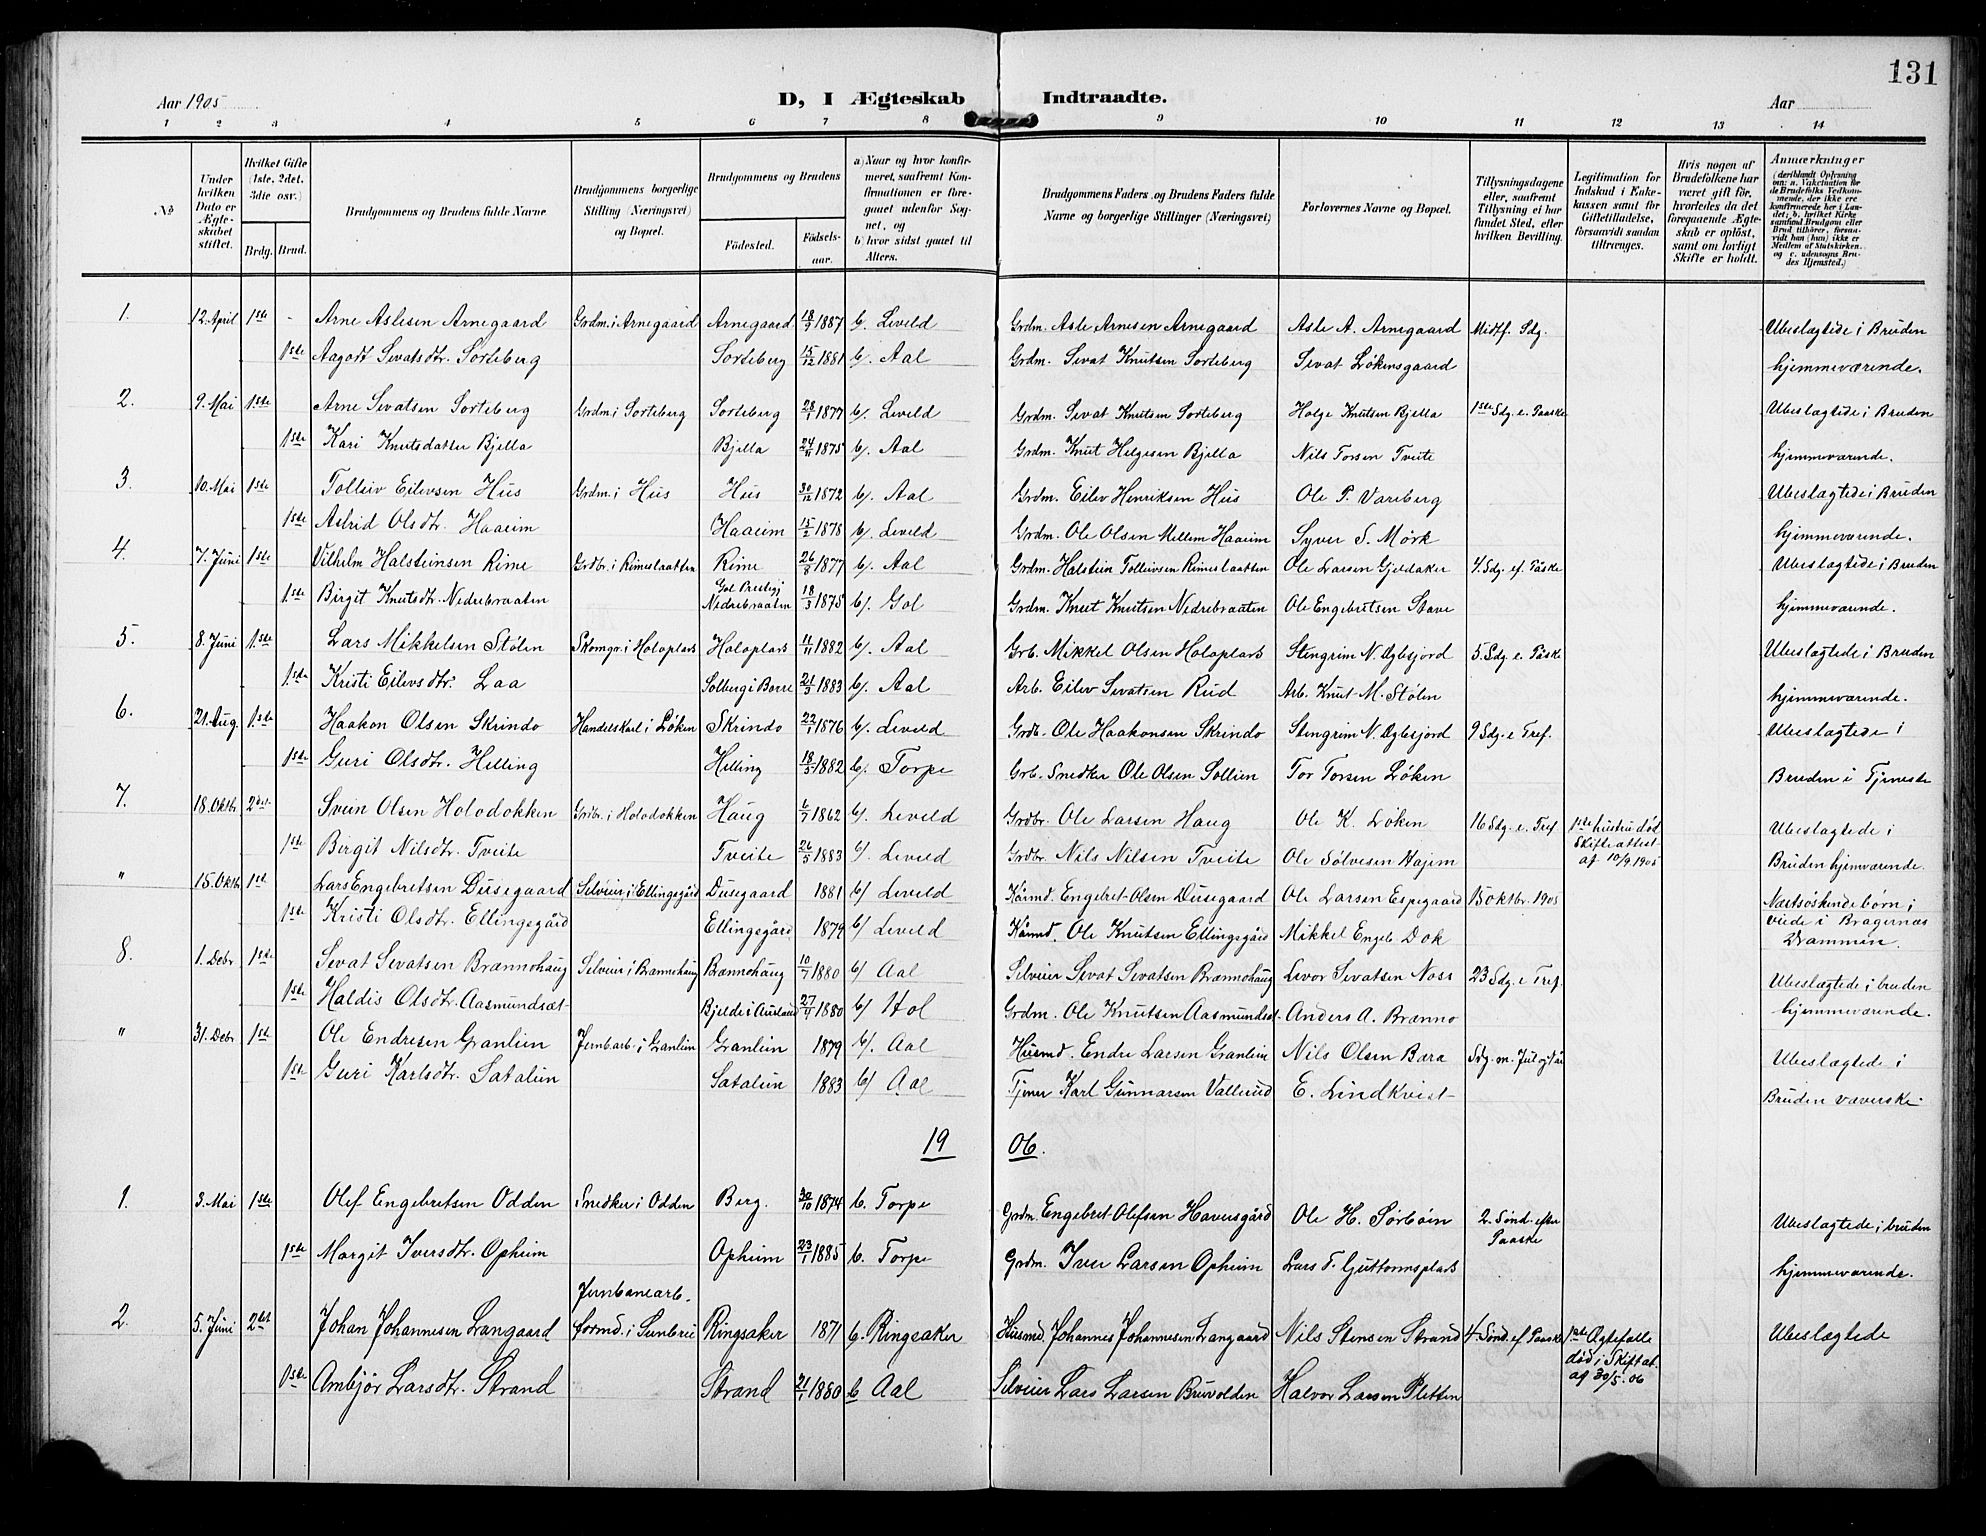 131
Aar 1905
D, I Ægteskab Indtraadte.
Aar
1 2 3 4 5 6 7 8 9 10 11 12 13 14
No
Under hvilken Dato er Ægteskabet stiftet.
Hvilket Gifte (1ste, 2det, 3die osv.)
Brdg. Brud.
Brudgommens og Brudens fulde Navne
Brudgommens borgerlige Stilling (Næringsvei) og Bopæl.
Brudgommens og Brudens
Fødested. Fødselsaar.
a) Naar og hvor konfirmeret, saafremt Konfirmationen er foregaaet udenfor Sognet, og
b) hvor sidst gaaet til Alters.
Brudgommens Faders og Brudens Faders fulde Navne og borgerlige Stillinger (Næringsvei)
Forlovernes Navne og Bopæl.
Tillysningsdagene eller, saafremt Tillysning ei har fundet Sted, efter hvilken Bevilling.
Legitimation for Indskud i Enkekassen samt for Giftetilladelse, forsaavidt saadan tiltrænges.
Hvis nogen af Brudefolkene har været gift før, hvorledes da det foregaaende Ægteskab er opløst, samt om lovligt Skifte er holdt.
Anmærkninger (deriblandt Oplysning om: a. Vakcination for de Brudefolks Vedkommende, der ikke ere konfirmerede her i Landet; b. hvilket Kirkesamfund Brudgom eller Brud tilhører, forsaavidt han (hun) ikke er Medlem af Statskirken, og c. udensogns Brudes Hjemsted.)
1. 12. April 1ste - Arne Aslesen Arnegaard Grdm. i Arnegaard Arnegaard 18/9 1887 b/. Leveld Grdm. Asle Arnesen Arnegaard Asle A. Arnegaard Midtf. Sdg. Ubeslægtede i Bruden
1ste Aagot Sevatsdtr. Sorteberg Sorteberg 15/12 1881 b/. Aal Grdm. Sevat Knutsen Sorteberg Sevat Løkensgaard hjemmeværende.
2. 9. Mai 1.ste Arne Sevatsen Sorteberg Grdm. i Sorteberg Sorteberg 28/1 1877 b/. Leveld Grdm. Sevat Knutsen Sorteberg Holge Knutsen Bjella 1ste Sdg. e. Paaske Ubeslægtede i Bruden
1ste Kari Knutsdatter Bjella Bjella 24/11 1875 b/. Aal Grdm. Knut Helgesen Bjella Nils Torsen Tveite hjemmeværende.
3. 10. Mai 1ste Tolleiv Eilevsen Hus Grdm. i Hus Hus 30/12 1872 b/. Aal Grdm. Eilev Henriksen Hus Ole P. Vareberg Ubeslægtede i Bruden
1ste Astrid Olsdtr. Haaeim Haaeim 15/2 1878 b/. Leveld Grdm. Ole Olsen Mellem Haaeim Syver S. Mørk hjemmeværende.
4. 7. Juni 1ste Vilhelm Halsteinsen Rime Grdbr. i Rimeslaatten Rime 26/8 1877 b/. Aal Grdm. Halstein Tolleivsen Rimeslaatten Ole Larsen Gjeldaker 4. Sdg. ef. Påske Ubeslægtede i Bruden
1.ste Birgit Knutsdtr. Nedrebraaten Gol Prestegj Nedrebraaten 18/3 1875 b/. Gol Grdm. Knut Knutsen Nedrebraaten Ole Engebretsen Stave hjemmeværende.
5. 8. Juni 1.ste Lars Mikkelsen Stølen Skomgr. i Holoplads Holoplads 11/11 1882 b/. Aal Grb. Mikkel Olsen Holoplads Stengrim N. Øgbesjord 5. Sdg. e. Påske Ubeslægtede i Bruden
1.ste Kristi Eilevsdtr. Laa Solberg i Borre 21/3 1883 b/. Aal Arb. Eilev Sevatsen Rud Arb. Knut M. Stølen hjemmeværende.
6. 21. Aug. 1.ste Haakon Olsen Skrindo Handelskarl i Løken Skrindo 22/1 1876 b/. Leveld Grdb. Ole Haakonsen Skrindo Stengrim N. Øgbesjord 9 Sdg. e Tref. Ubeslægtede i
1ste Guri Olsdtr. Helling Helling 18/5 1882 b/. Torpe Grb. Snedker Ole Olsen Sollien Tor Torsen Løken Bruden i Tjeneste
7. 18. Oktbr 2det Svein Olsen Holodokken Grdbr. i Holodokken Haug 6/7 1862 b/ Leveld Grdbr. Ole Larsen Haug Ole K. Løken 16 Sdg. e. Tref. 1ste hustru død Skifteattest af 10/9 1905 Ubeslægtede i
1ste Birgit Nilsdtr. Tveite Tveite 26/5 1883 b/. Leveld Grdbr. Nils Nilsen Tveite Ole Sølvesen Hajem Bruden hjemværende.
" 15. Oktbr 1ste Lars Engebretsen Dusegaard Selveier i Ellingsgård Dusegaard 1881 b/ Leveld Kårmd. Engebret Olsen Dusegaard Ole Larsen Espegaard 15 oktbr. 1905 Næstsøskendebørn;
1ste Kristi Olsdtr. Ellingsgård Ellingsgård 1879 b/ Leveld Kårmd. Ole Knutsen Ellingsgård Mikkel Engeb. Dok viede i Bragernæs Drammen.
8. 1. Debr 1ste Sevat Sevatsen Brænnohaug Selveier i Brænnohaug Brænnohaug 10/7 1880 b/ Aal Selveier Sevat Sevatsen Brænnohaug Levor Sevatsen Noss 23 Sdg. e Tref. Ubeslægtede i bruden
1ste Haldis Olsdtr. Aasmundsæt Bjelde i Aurland 27/4 1880 b/ Hol Grdm. Ole Knutsen Aasmundsæt Anders A. Brænno hjemmeværende.
" 31. Debr 1ste Ole Endresen Granlien Jernb.arb. i Granlien Granlien 1879 b/. Aal Husmd. Endre Larsen Granlien Nils Olsen Bæra Sdg. m. Jul og Får Ubeslægtede i
1ste Guri Karlsdtr. Sataliin Sataliin 1883 b/ Aal Tjener Karl Gunnarsen Vallerud E. Lindkvist Bruden væverske
1906.
1. 3. Mai 1ste Olef Engebretsen Odden Snedker i Odden Berg. 30/10 1874 b. Torpe Grdm. Engebret Olefsen Haversgård Ole H. Sørbøen 2. Sønd. efter Paaske Ubeslægtede, bruden
1ste Margit Iversdtr. Opheim Opheim 23/1 1885 b. Torpe Grdm. Iver Larsen Opheim Lars T. Guttormsplads hjemmeværende.
2. 5. Juni 2det Johan Johannesen Langaard Jernbanearb. formd. i Sunbrei Ringsaker 1871 b. Ringsaker Husmd. Johannes Johannesen Langaard Nils Stensen Strand 4. Sønd. ef Paaske 1ste Ægtefælle død; Skiftat. ag 30/5. 06 Ubeslægtede
1ste Ambjør Larsdtr. Strand Strand 21/1 1880 b Aal Selveier Lars Larsen Bruvolden Halvor Larsen Pletten